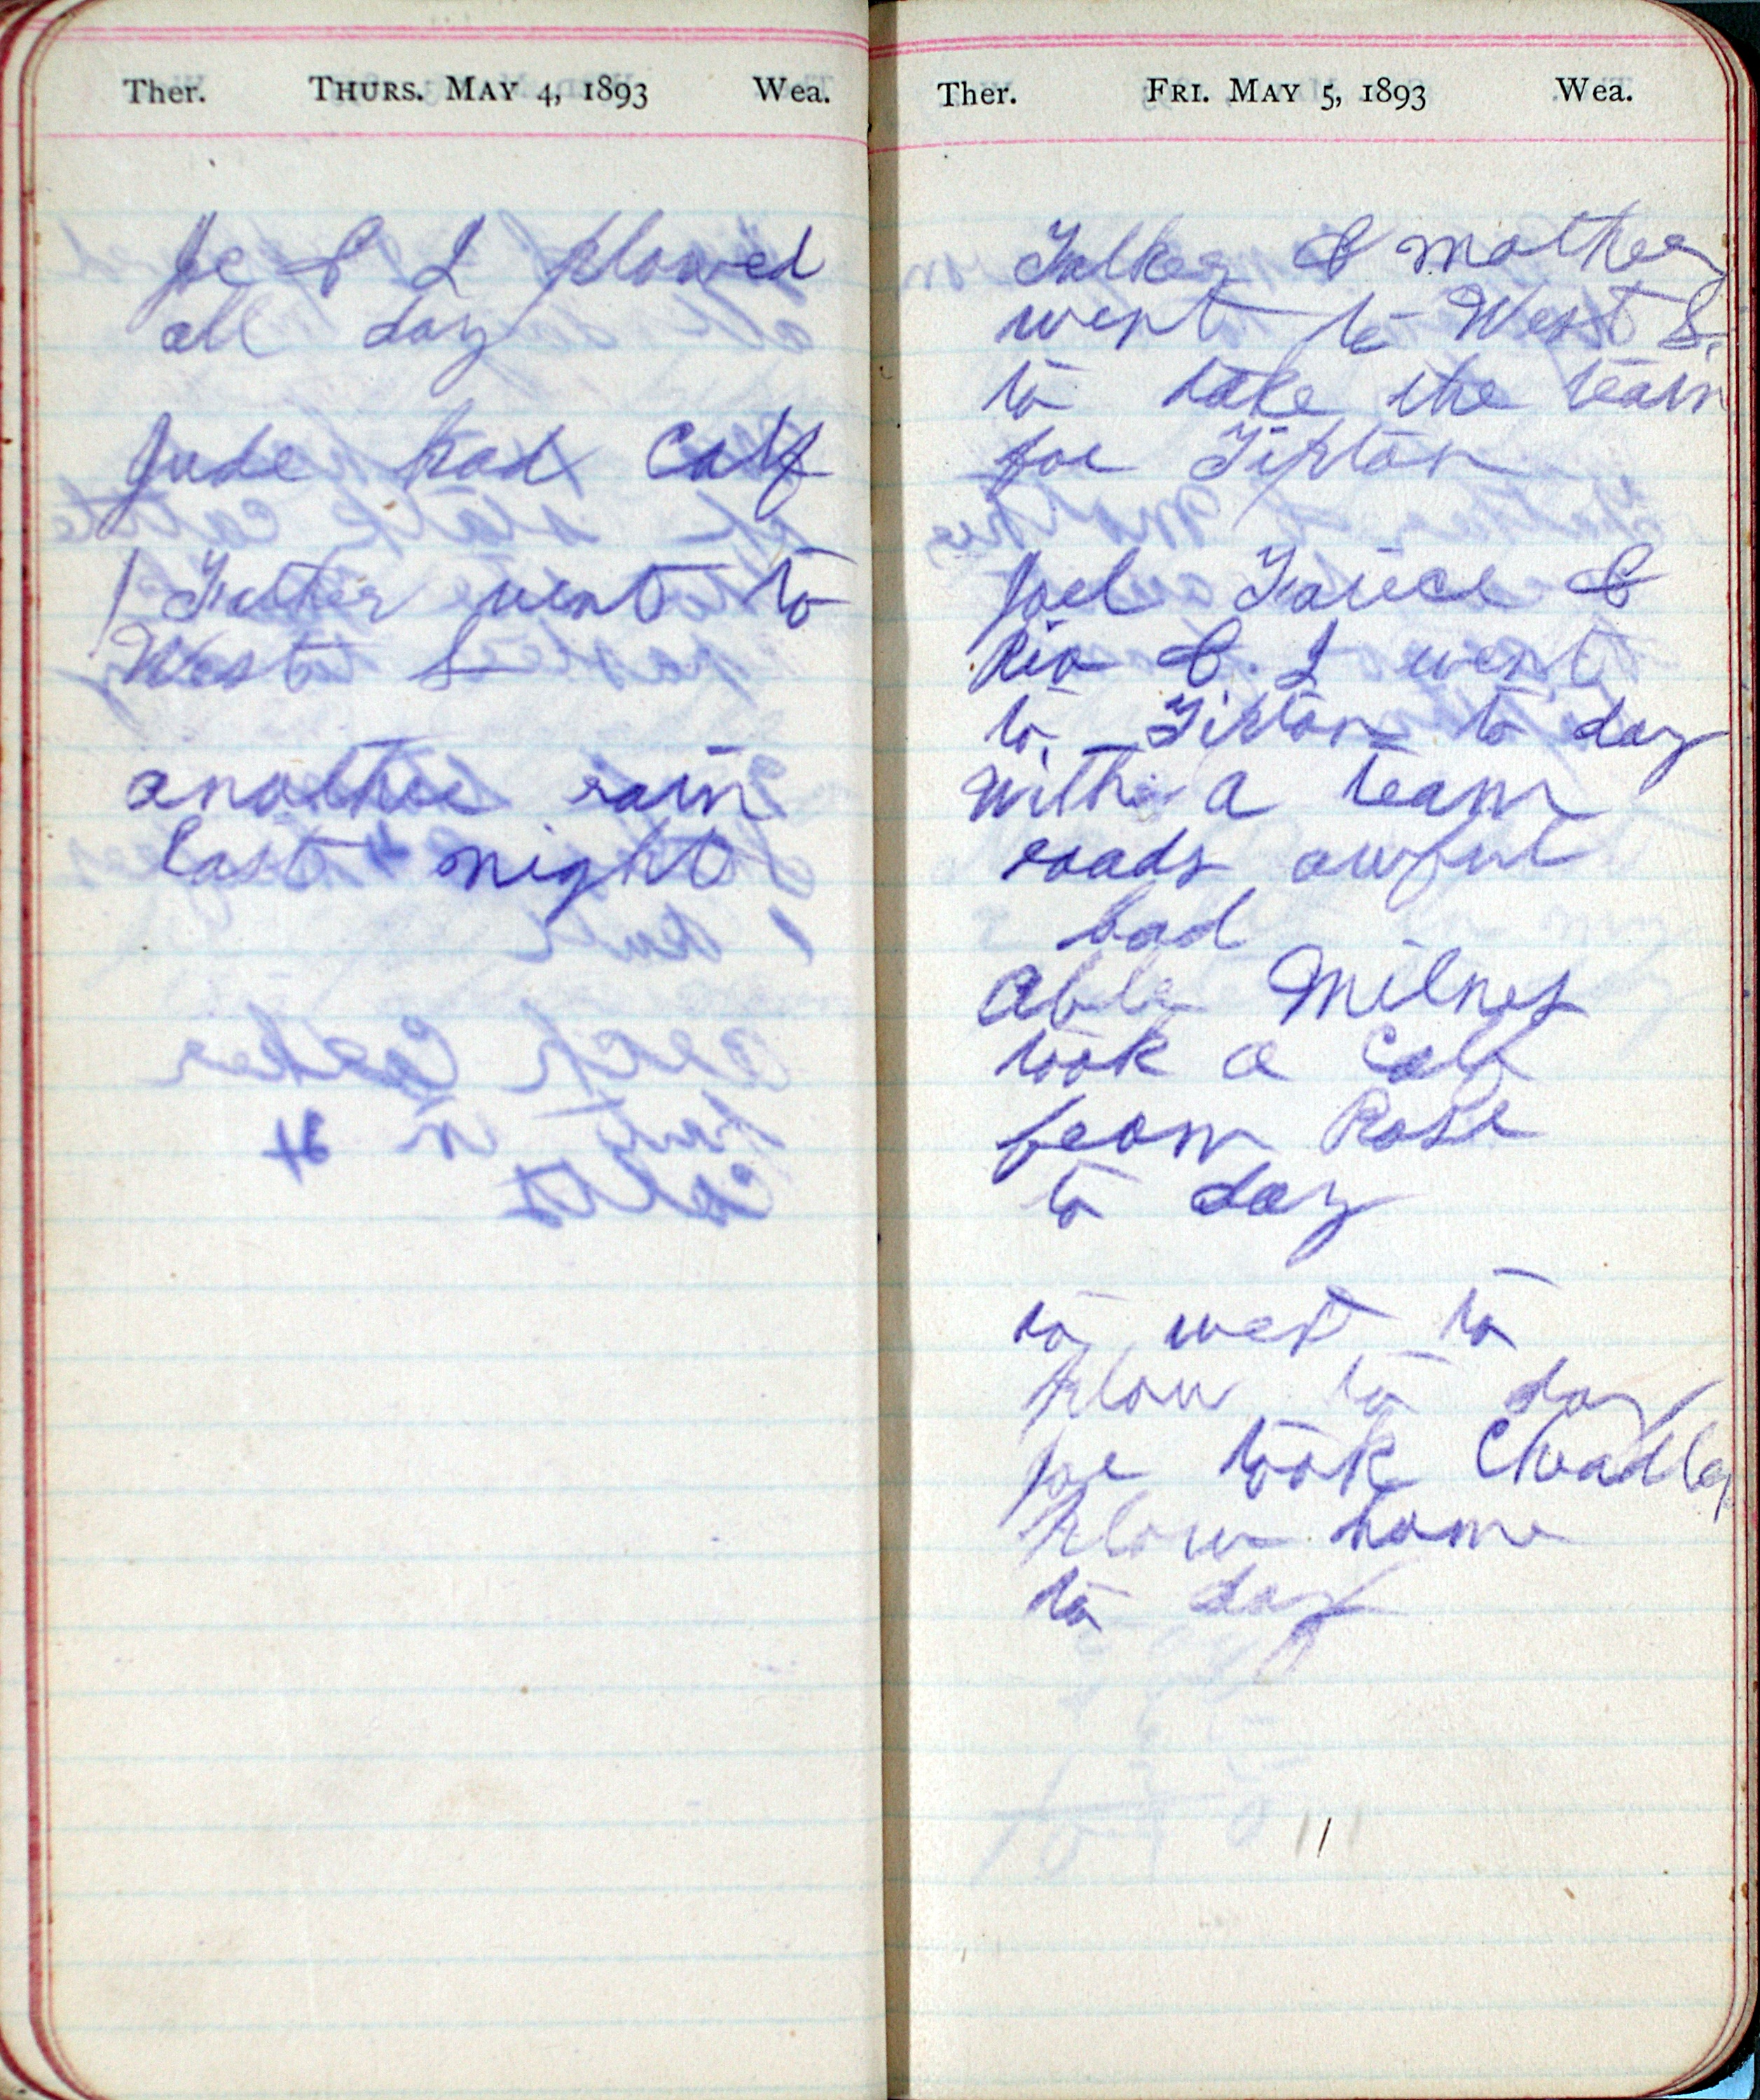 Ther. THURS. MAY 4, 1893 Wea.
Joe & I plowed
all day
Jude had Calf
Father went to
West L
another rain
last night
Ther. FRI. MAY 5, 1893 Wea.
Father & Mother
went to West L.
to take the train
for Tipton
Joel &
& I went
to Tipton to day
with a team
roads awful
bad
Able Milnes
took a Calf
from Rose
to day
to wet to
plow to day
Joe took
plow home
to day